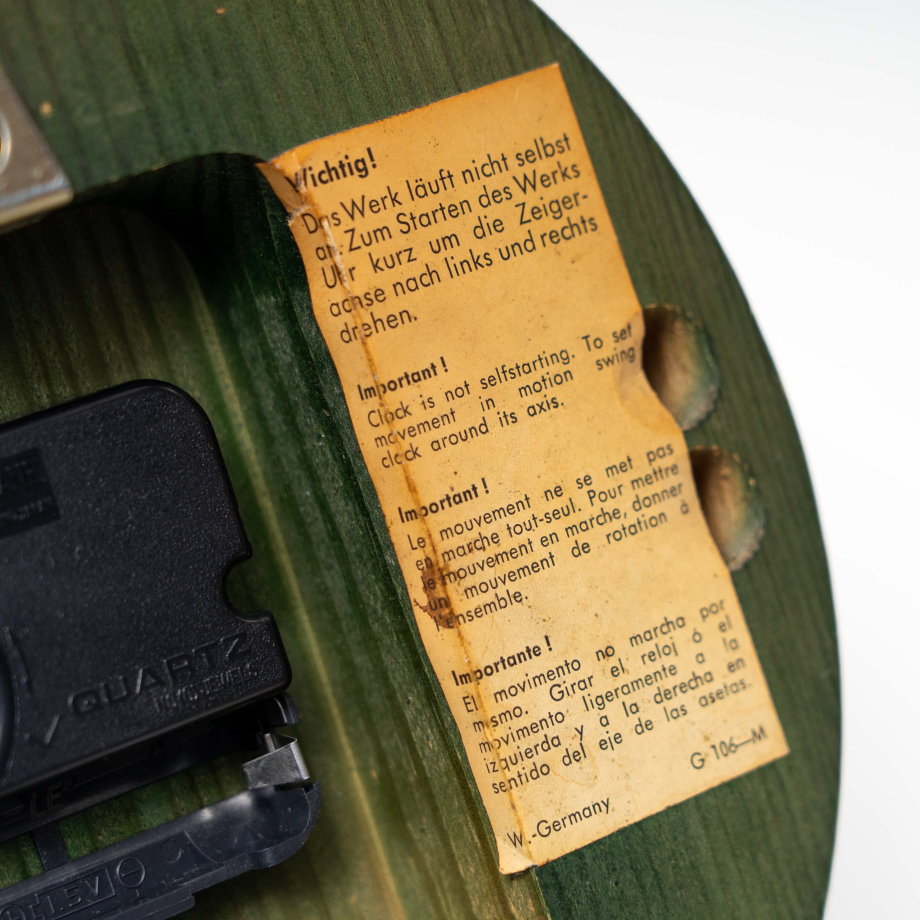 Wichtig!
Das Werk läuft nicht selbst
an. Zum Starten des Werks
Uhr kurz um die Zeiger-
achse nach links und rechts
drehen.
Important!
Clock is not selfstarting. To set
movement in motion swing
clock around its axis.
Important!
Le mouvement ne se met pas
en marche tout-seul. Pour mettre
le mouvement en marche, donner
un mouvement de rotation à
l'ensemble.
Importante!
El movimento no marcha por
mismo. Girar el reloj ó el
movimento ligeramente a la
izquierda y a la derecha en
sentido del eje de las asetas.
G 106—M
W.-Germany
QUARTZ